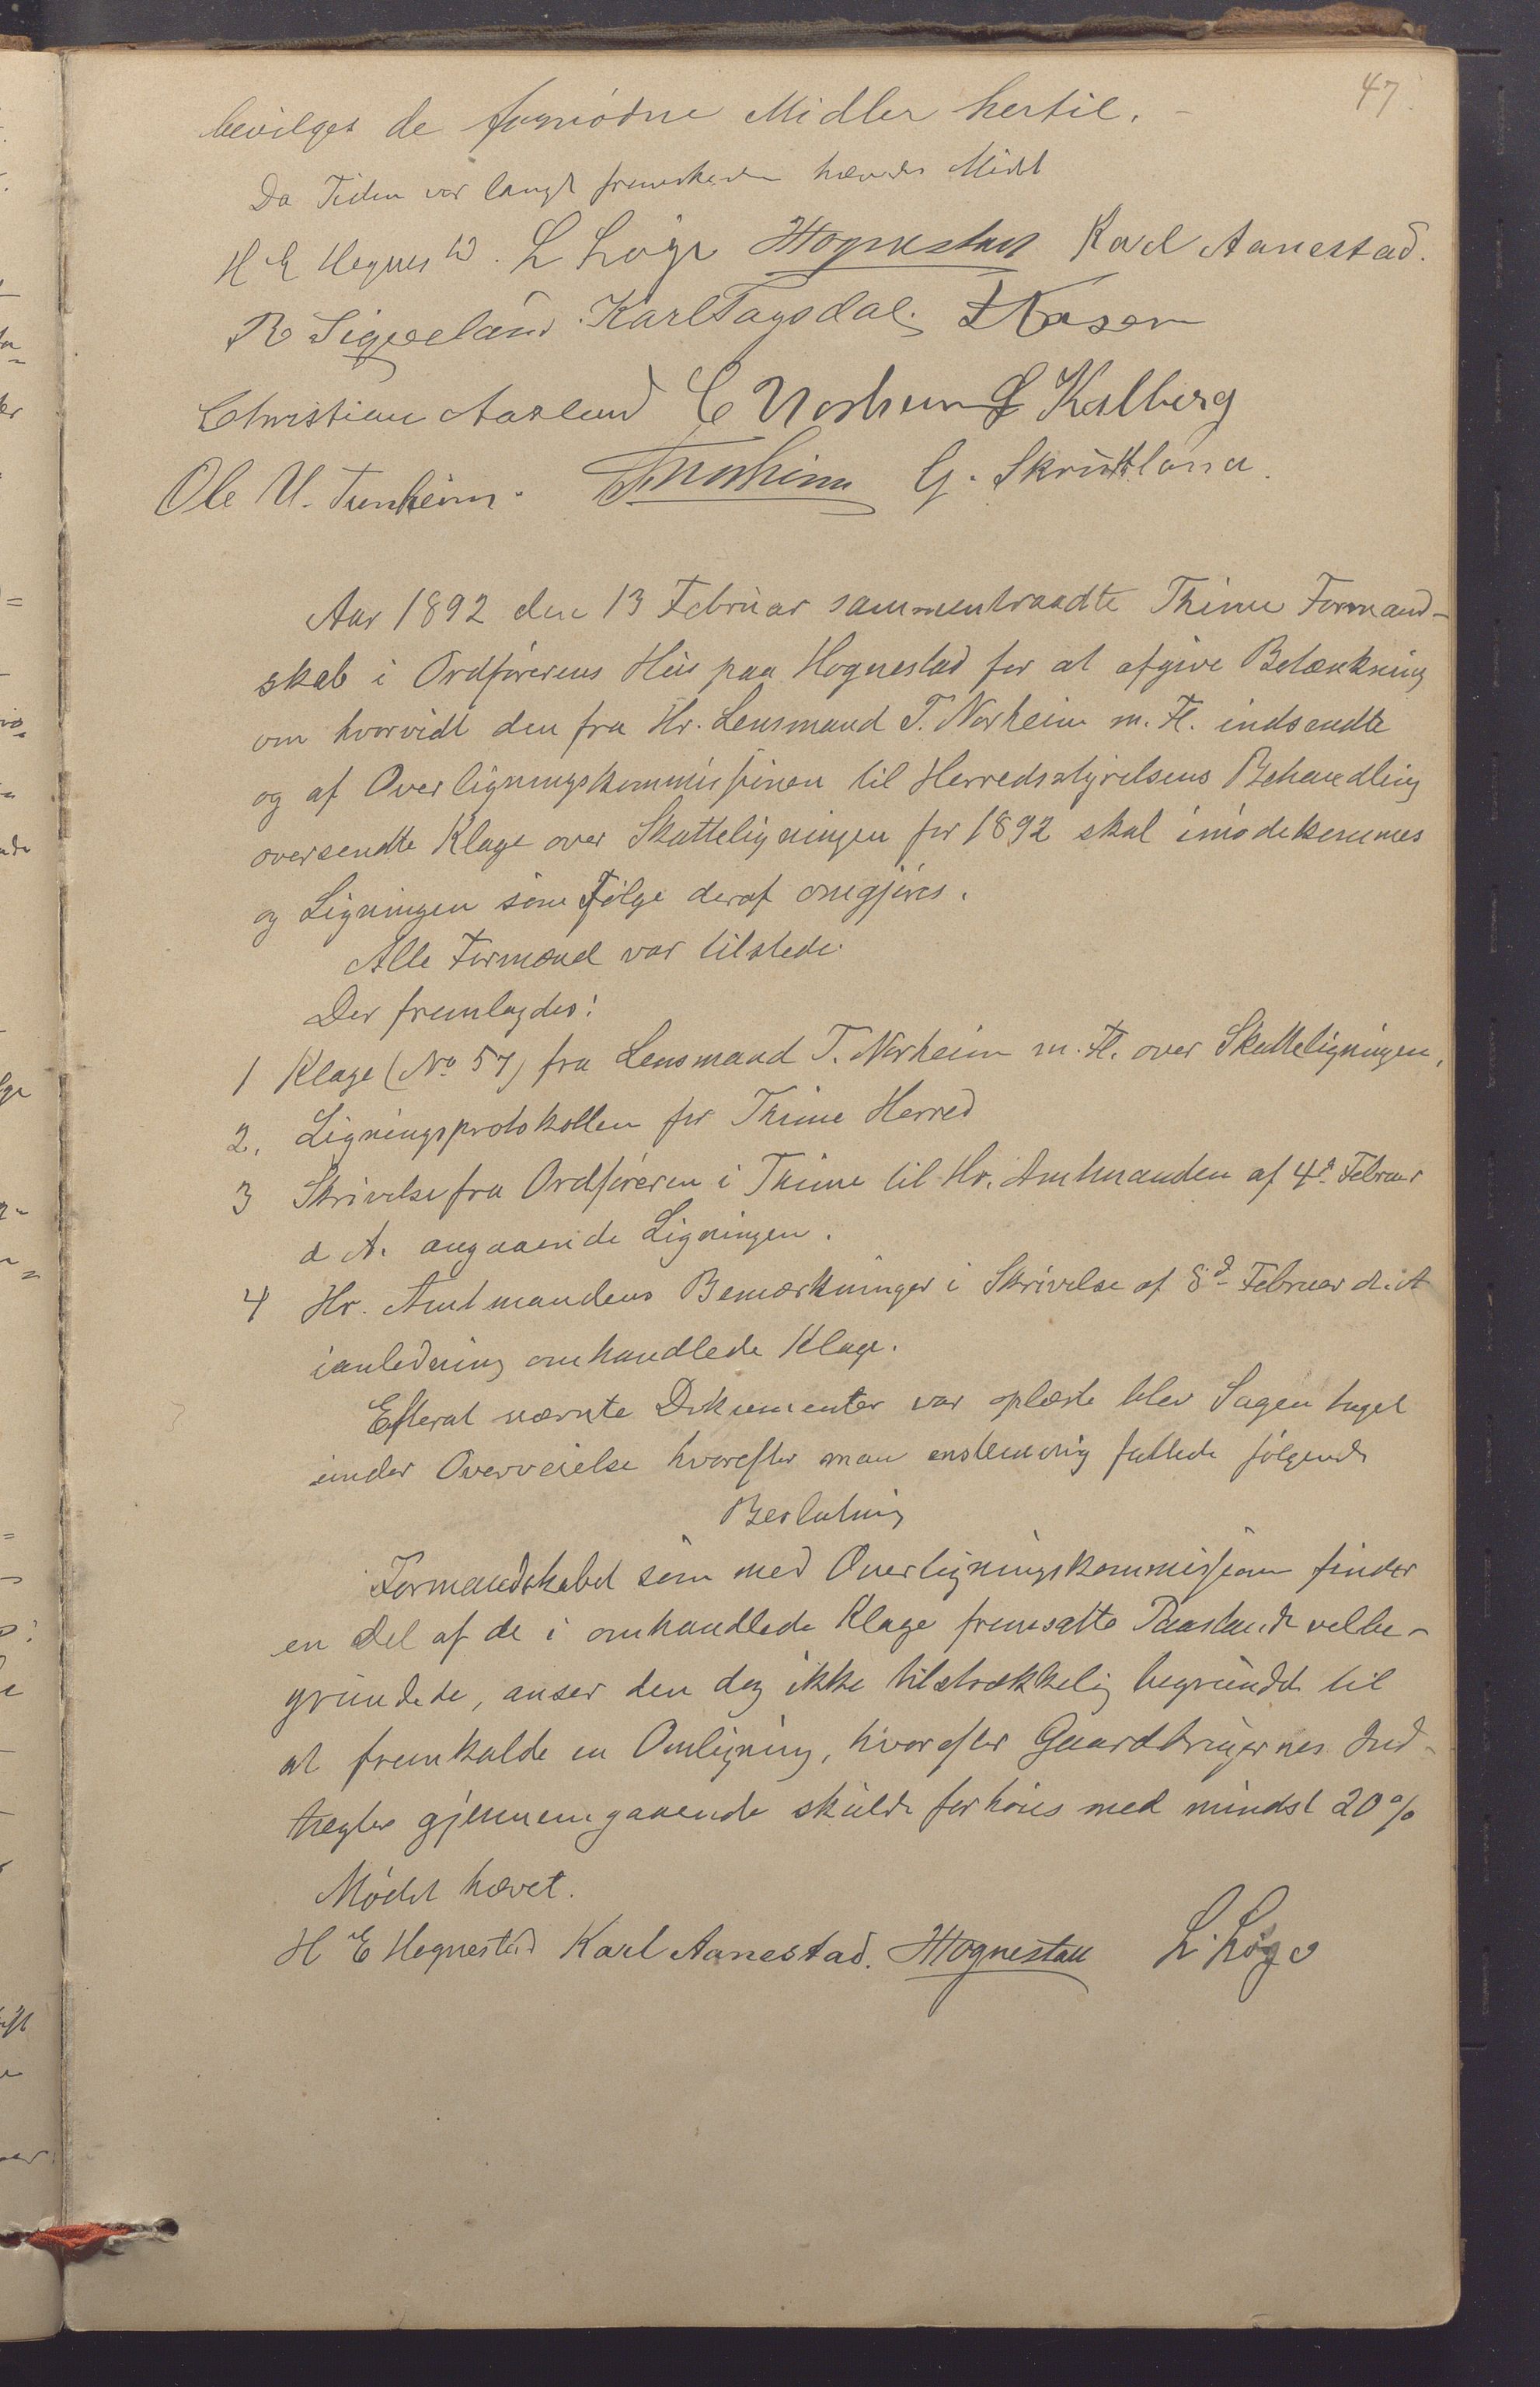 47.
bevilges de fornødne Midler hertil. -
Da Tiden var langt fremskreden hævedes Mødet
H E Hognestd. L Loge Hognestad Karl Aanestad.
R Sigveland Karl Fagsdal.
Christian Aasland C Norheim Kalberg
Ole U. Tunheim. Norheim G. Skrudland.
Aar 1892 den 13 Februar sammentraadte Thime Formand-
skab i Ordførerens Hus paa Hognestad for at afgive Betænkning
om hvorvidt den fra Hr. Lensmand T. Norheim m. Fl. indsendte
og af Overligningskommissionen til Herredsstyrelsens Behandling
oversendte Klage over Skatteligningen for 1892 skal imødekommes
og Ligningen som Følge deraf omgjøres.
Alle Formænd var tilstede.
Der fremlagdes:
1 Klage (No 57) fra Lensmand T. Norheim m. Fl. over Skatteligningen,
2. Ligningsprotokollen for Thime Herred
3 Skrivelse fra Ordføreren i Thime til Hr. Amtmanden af 4de Februar
d A. angaaende Ligningen.
4 Hr. Amtmandens Bemærkninger i Skrivelse af 8de Februar d. A
ianledning omhandlede Klage.
Efterat nævnte Dokumenter var oplæste blev Sagen taget
under Overveielse hvorefter man enstemmig fattede følgende
Beslutning
Formandskabet som med Overligningskommissionen finder
en Del af de i omhandlede Klage fremsatte Paastande velbe-
grundede, anser den dog ikke tilstrækkelig begrundet til
at fremkalde en Omligning, hvorefter Gaardbrugernes Ind-
tægter gjennemgaaende skulde forhøies med mindst 20%
Mødet hævet.
H E Hognestad Karl Aanestad. Hognestad L. Loge